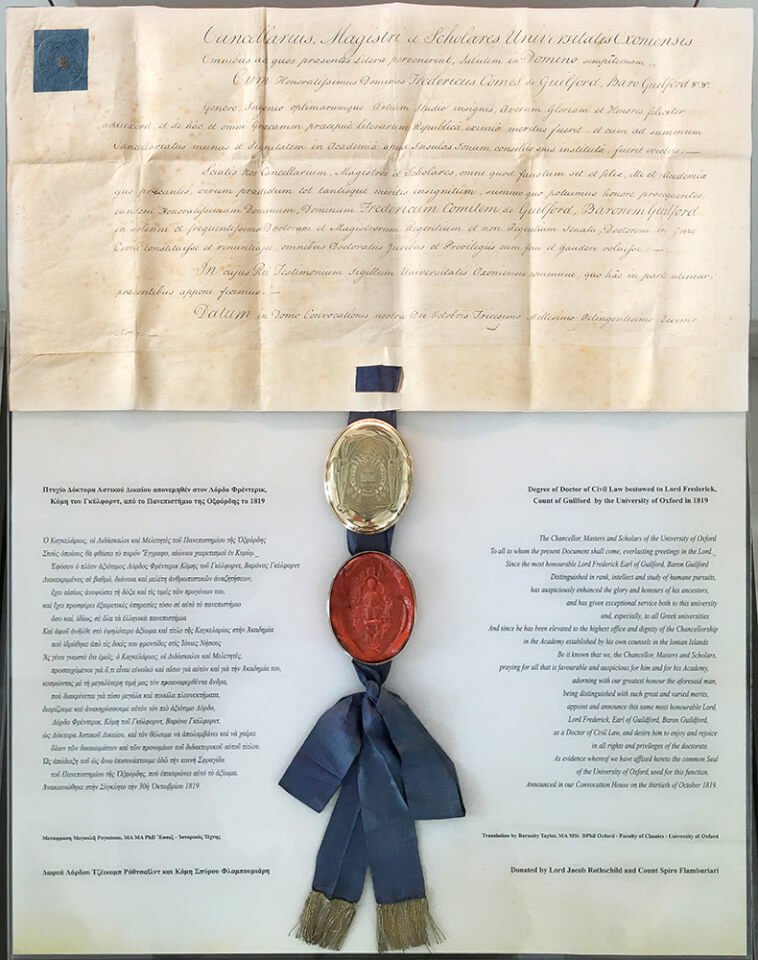 Cancellarius, Magistri et Scholares Universitatis Oxoniensis
Omnibus ad quos præsentes Literæ pervenerint, Salutem in Domino sempiternam.
Cum Honoratissimus Dominus Fredericus Comes de Guilford, Baro Guilford
Genere, Ingenio optimarumque Artium Studio insignis, Avorum Gloriam et Honores feliciter
adauxerit, et de hâc et omni Græcarum præcipuè literarum Republicâ eximiè meritus fuerit et cum ad summum
Cancellariatûs munus et dignitatem in Academiâ apud Insulas Ionum consiliis suis institutâ, fuerit evectus.
Sciatis nos Cancellarium, Magistros et Scholares, omne quod faustum sit et felix, Illi et Academiæ
precantes, virum prædictum tot tantisque meritis insignitum, summo quo possumus honore prosequentes,
eundem Honoratissimum Dominum, Dominum Fredericum Comitem de Guilford, Baronem Guilford
in solenni et frequentissimo Doctorum et Magistrorum Regentium et non Regentium Senatu, Doctorem in Jure
Civili constituisse et renuntiasse, omnibus Doctoratûs Juribus et Privilegiis eum frui et gaudere voluisse.
In cujus Rei Testimonium Sigillum Universitatis Oxoniensis commune, quo hâc in parte utimur,
præsentibus apponi fecimus.
Datum in Domo Convocationis nostræ Die Octobris Tricesimo Millesimo Octingentesimo Decimo
Πτυχίο Δόκτορα Αστικού Δικαίου απονεμηθέν στον Λόρδο Φρέντερικ,
Κόμη του Γκύλφορντ, από το Πανεπιστήμιο της Οξφόρδης το 1819
Ὁ Καγκελάριος, οἱ Διδάσκαλοι καὶ Μελιτητές τοῦ Πανεπιστημίου τῆς Ὀξφόρδης
Στοὺς ὁποίους θὰ φθάσει τὸ παρὸν Ἔγγραφο, αἰώνιοι χαιρετισμοὶ ἐν Κυρίῳ._
Ἐφόσον ὁ πλέον ἀξιότιμος Λόρδος Φρέντερικ Κόμης τοῦ Γκύλφορντ, Βαρόνος Γκύλφορντ
Διακεκριμένος σὲ βαθμό, διάνοια καὶ μελέτη ἀνθρωπιστικῶν ἀναζητήσεων,
ἔχει αἰσίως ἀνυψώσει τὴ δόξα καὶ τὶς τιμές τῶν προγόνων του,
καὶ ἔχει προσφέρει ἐξαιρετικές ὑπηρεσίες τόσο σὲ αὐτὸ τὸ πανεπιστήμιο
ὅσο καί, ἰδίως, σὲ ὅλα τὰ ἑλληνικὰ πανεπιστήμια
Καὶ ἀφοῦ ἀνῆλθε στὸ ὑψηλότερο ἀξίωμα καὶ τίτλο τῆς Καγκελαρίας στὴν Ἀκαδημία
ποὺ ἱδρύθηκε ἀπὸ τὶς δικές του φροντίδες στὶς Ἰόνιες Νήσους
Ἂς γίνει γνωστὸ ὅτι ἐμεῖς, ὁ Καγκελάριος, οἱ Διδάσκαλοι καὶ Μελητητές,
προσευχόμενοι γιὰ ὅ,τι εἶναι εὐνοϊκὸ καὶ αἴσιο γιὰ αὐτὸν καὶ γιὰ τὴν Ἀκαδημία του,
κοσμώντας μὲ τὴ μεγαλύτερη τιμή μας τὸν προαναφερθέντα ἄνδρα,
ποὺ διακρίνεται γιὰ τόσο μεγάλα καὶ ποικίλα πλεονεκτήματα,
διορίζουμε καὶ ἀνακηρύσσουμε αὐτὸν τὸν πιὸ ἀξιότιμο Λόρδο,
Λόρδο Φρέντερικ, Κόμη τοῦ Γκύλφορντ, Βαρόνο Γκύλφορντ,
ὡς Δόκτορα Ἀστικοῦ Δικαίου, καὶ τὸν θέλουμε νὰ ἀπολαμβάνει καὶ νὰ χαίρει
ὅλων τῶν δικαιωμάτων καὶ τῶν προνομίων τοῦ διδακτορικοῦ αὐτοῦ τίτλου.
Ὡς ἀπόδειξη τοῦ ὡς ἄνω ἐπισυνάπτουμε ἐδῶ τὴν κοινὴ Σφραγίδα
τοῦ Πανεπιστημίου τῆς Ὀξφόρδης, ποὺ ἐπικυρώνει αὐτὸ τὸ ἀξίωμα.
Ἀνακοινώθηκε στὴν Σύγκλητο τὴν 30ὴ Ὀκτωβρίου 1819.
Μετάφραση Μεγακλῆ Ρογκάκου, MA MA PhD Ἔσσεξ - Ἱστορικὸς Τέχνης
Δωρεά Λόρδου Τζέικομπ Ρόθτσαϊλντ και Κόμη Σπύρου Φλαμπουριάρη
Degree of Doctor of Civil Law bestowed to Lord Frederick,
Count of Guilford by the University of Oxford in 1819
The Chancellor, Masters and Scholars of the University of Oxford
To all to whom the present Document shall come, everlasting greetings in the Lord._
Since the most honourable Lord Frederick Earl of Guilford, Baron Guilford
Distinguished in rank, intellect and study of humane pursuits,
has auspiciously enhanced the glory and honours of his ancestors,
and has given exceptional service both to this university
and, especially, to all Greek universities
And since he has been elevated to the highest office and dignity of the Chancellorship
in the Academy established by his own counsels in the Ionian Islands
Be it known that we, the Chancellor, Masters and Scholars,
praying for all that is favourable and auspicious for him and for his Academy,
adorning with our greatest honour the aforesaid man,
being distinguished with such great and varied merits,
appoint and announce this same most honourable Lord,
Lord Frederick, Earl of Guildford, Baron Guildford,
as a Doctor of Civil Law, and desire him to enjoy and rejoice
in all rights and privileges of the doctorate.
As evidence whereof we have affixed hereto the common Seal
of the University of Oxford, used for this function.
Announced in our Convocation House on the thirtieth of October 1819.
Translation by Barnaby Taylor, MA MSt DPhil Oxford - Faculty of Classics - University of Oxford
Donated by Lord Jacob Rothschild and Count Spiro Flamburiari